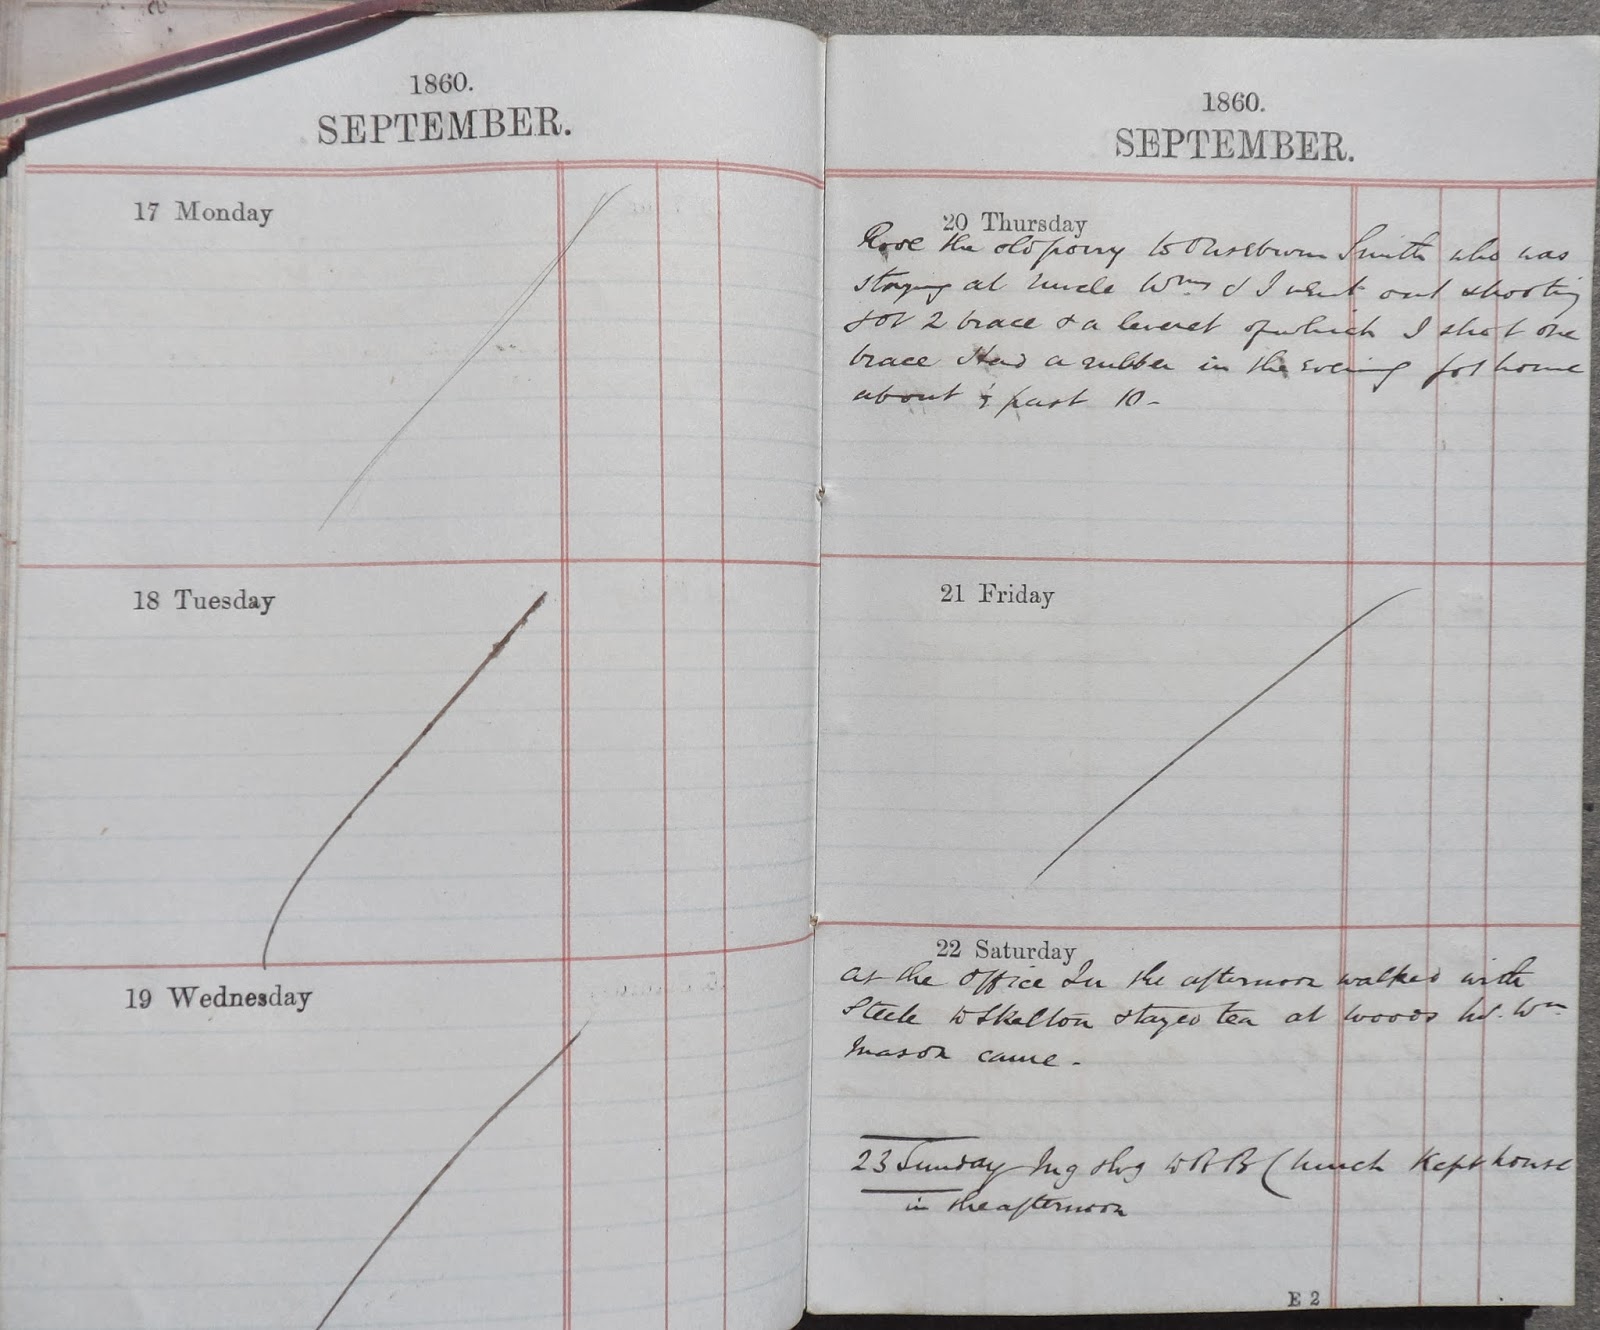 1860.
SEPTEMBER.
17 Monday
18 Tuesday
19 Wednesday
1860.
SEPTEMBER.
20 Thursday
the old pony to Ouseburn Smith who was
staying at Uncle Wms & I went out shooting
got 2 brace & a leveret of which I shot one
brace Had a rubber in the evening got home
about ½ past 10-
21 Friday
22 Saturday
at the office In the afternoon walked with
Steele to Skelton stayed tea at Woods Wm
Mason came -
23 Sunday Mg & Evg to B B Church Kept house
in the afternoon
E 2